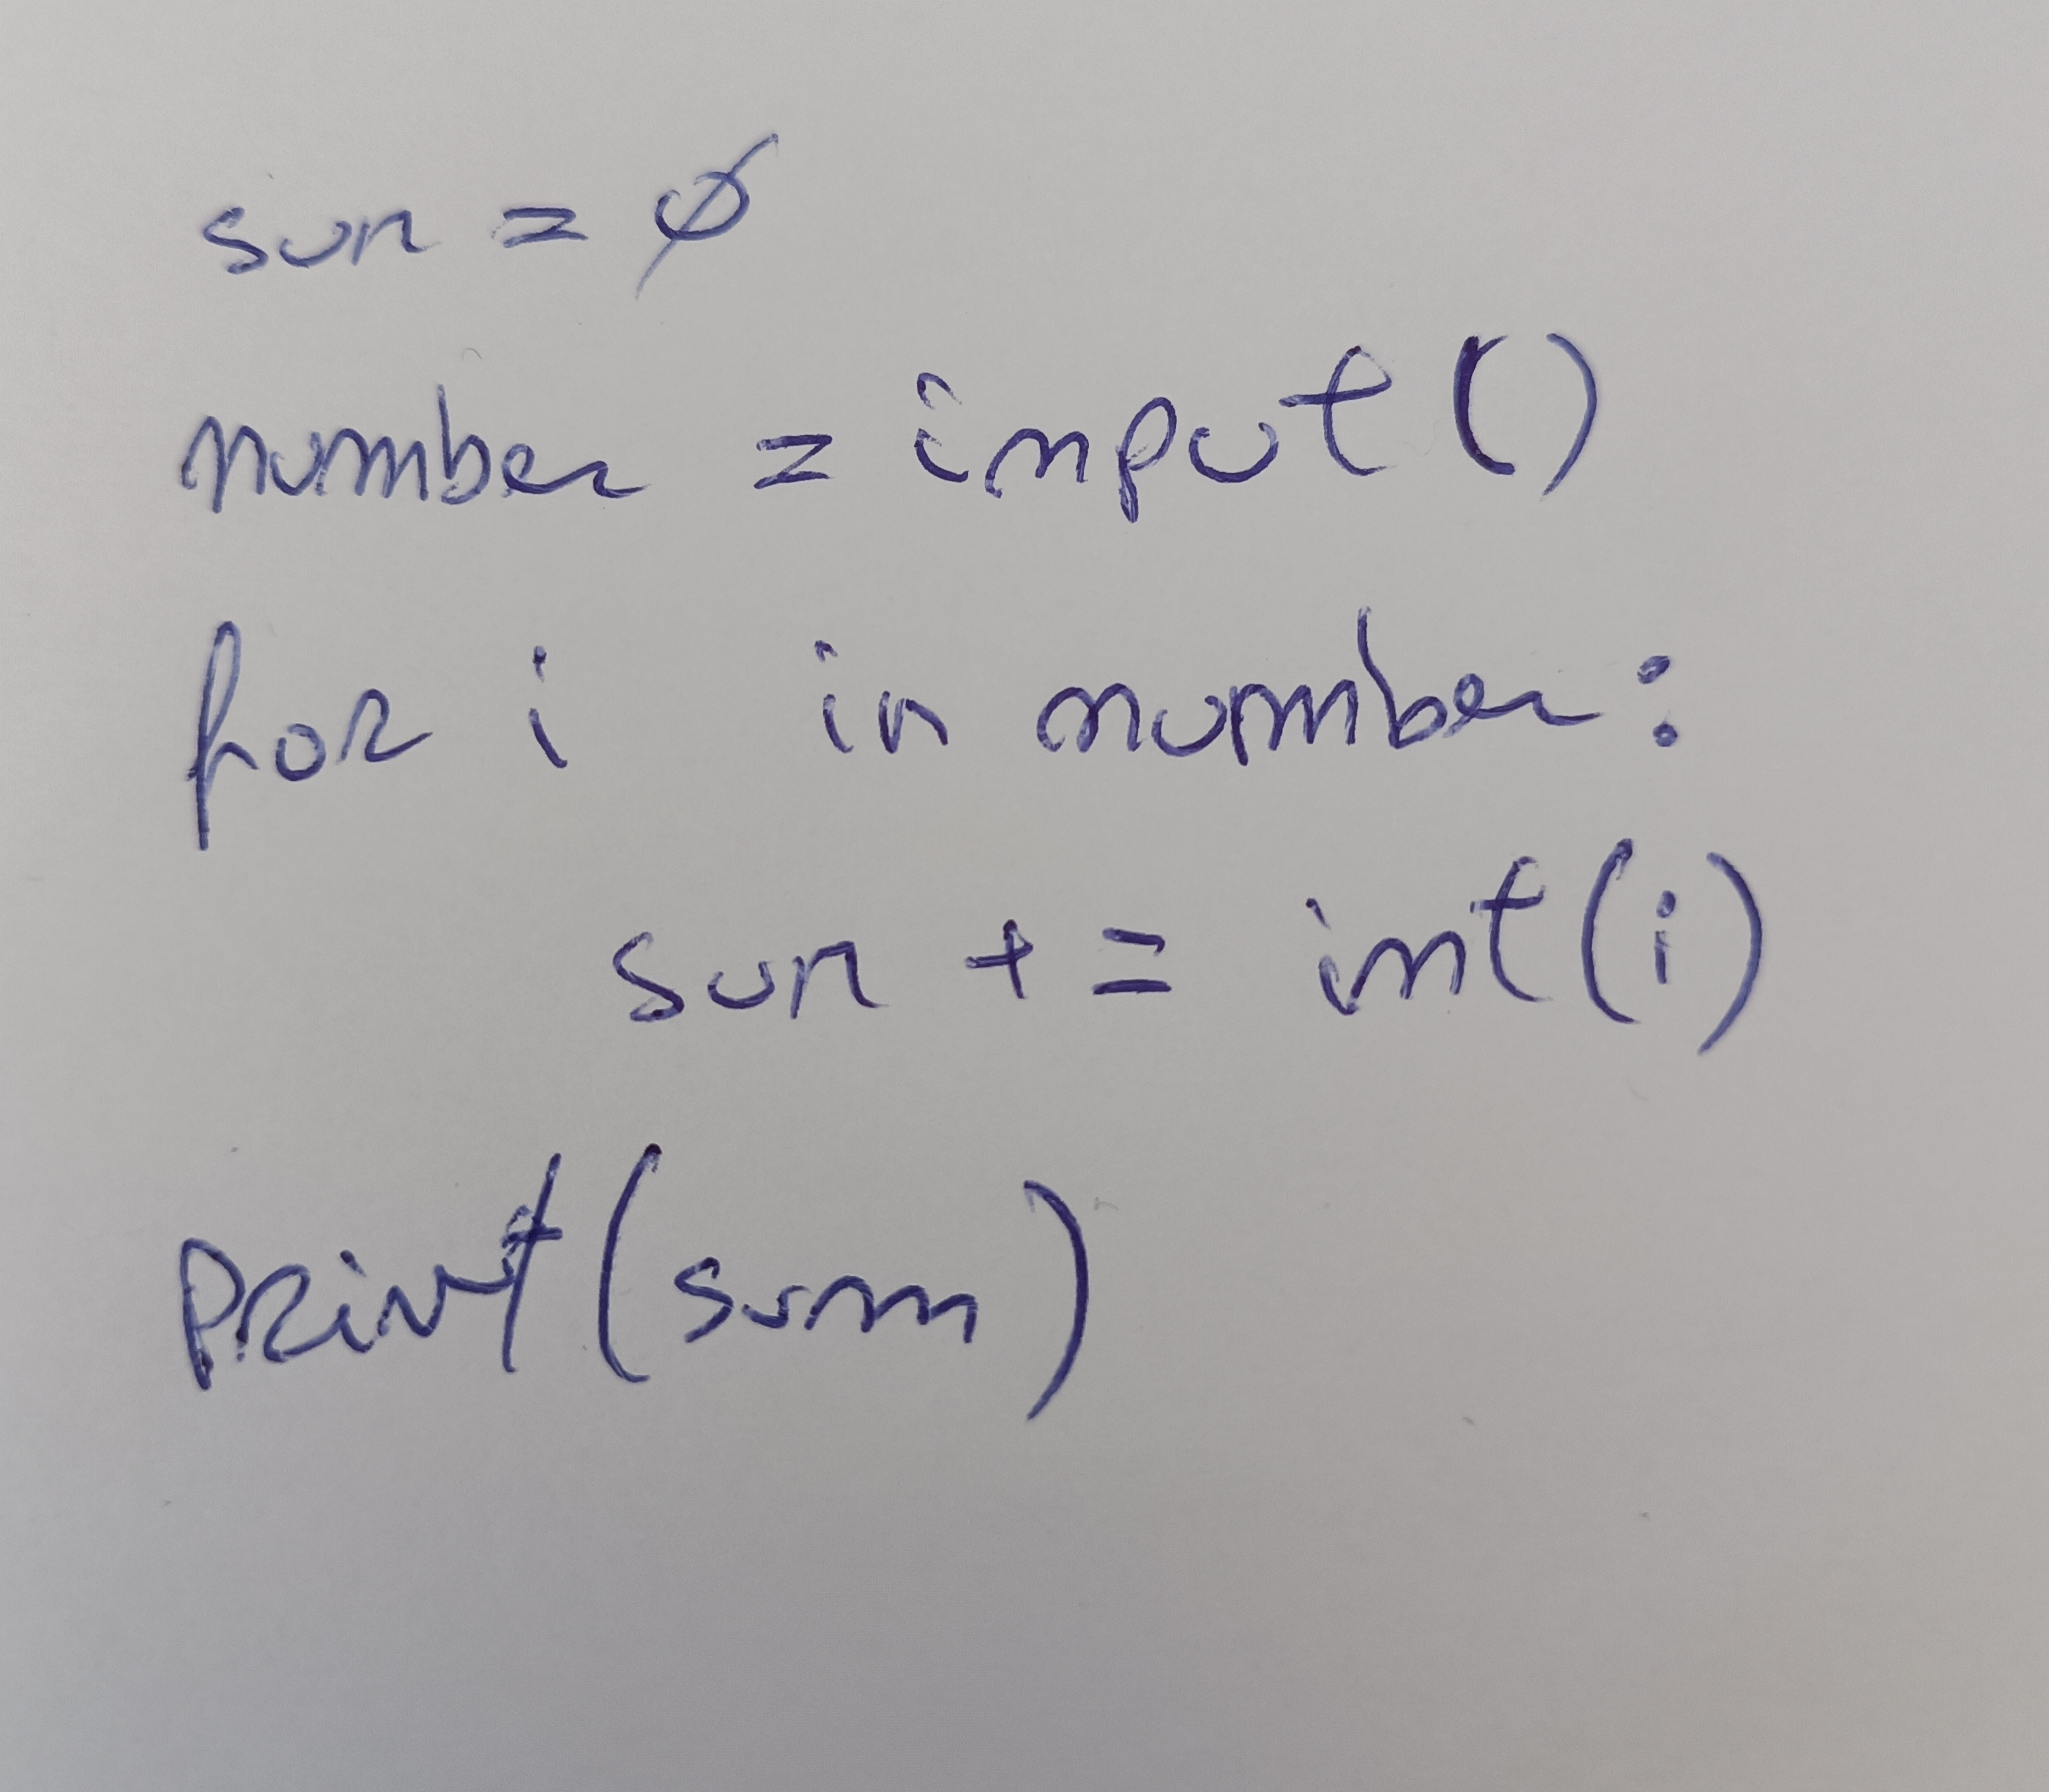 sum = 0
number = input()
for i in number:
sum += int(i)
print(sum)